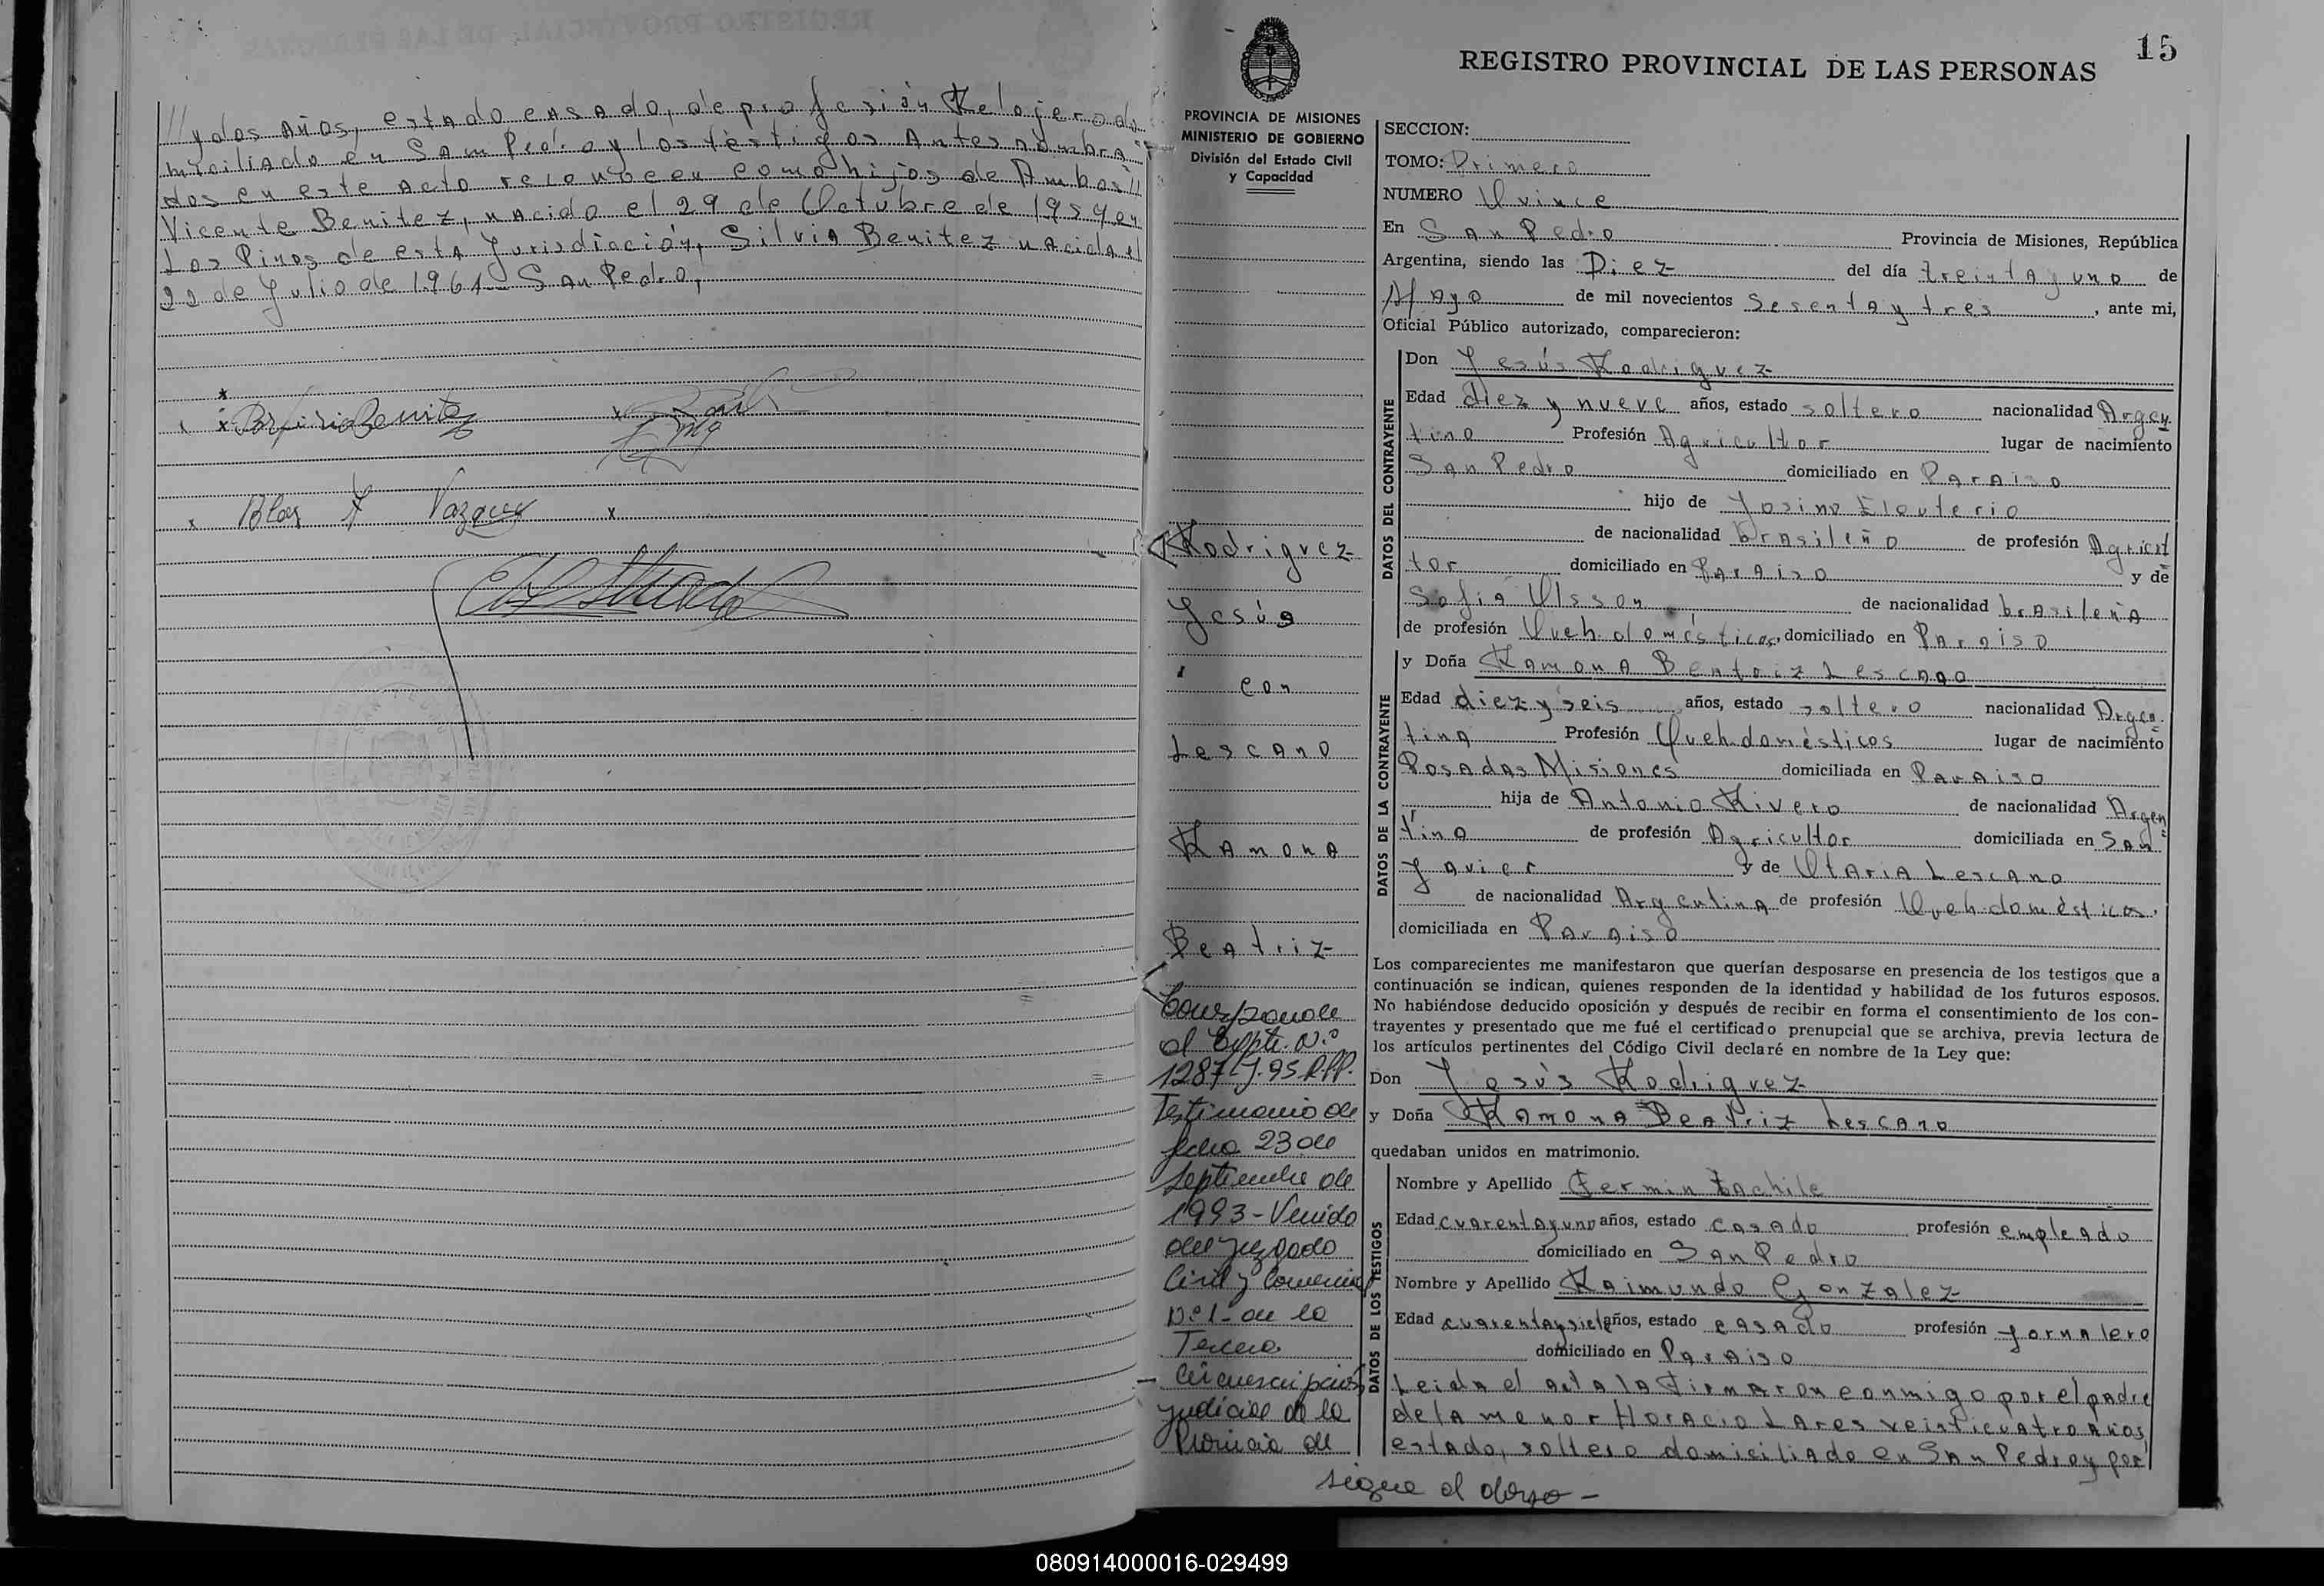 // y dos años, estado casado, de profesión Relojero do
miciliado en San Pedro y los testigos Antes nombra
dos en este acto reconocen como hijos de Ambos //
Vicente Benitez, nacido el 29 de Octubre de 1959 en
Los Pinos de esta Jurisdicción, Silvia Benitez nacida el
22 de Julio de 1961 San Pedro,
x Porfirio Benitez x
x Blas Vazquez x
15
REGISTRO PROVINCIAL DE LAS PERSONAS
PROVINCIA DE MISIONES
MINISTERIO DE GOBIERNO
División del Estado Civil
y Capacidad
Rodriguez
Jesús
con
Lescano
Ramona
Beatriz
Corresponde
al Expte. Nº
1287
Testimonio de
fecha 23 de
Septiembre de
1993 - Venido
del Juzgado
Civil y Comercial
Nº 1 - de la
Tercera
Circunscripción
Judicial de la
Provincia de
sigue al dorso -
SECCION:
TOMO: Primero
NUMERO Quince
En San Pedro Provincia de Misiones, República
Argentina, siendo las Diez del día treinta y uno de
Mayo de mil novecientos Sesenta y tres, ante mi,
Oficial Público autorizado, comparecieron:
DATOS DEL CONTRAYENTE
Don Jesús Rodriguez
Edad diez y nueve años, estado soltero nacionalidad Argen
tino Profesión Agricultor lugar de nacimiento
San Pedro domiciliado en Paraiso
hijo de Josino Eleuterio
de nacionalidad brasileño de profesión Agricul
tor domiciliado en Paraiso y de
Sofia Olsson de nacionalidad brasileña
de profesión Queh. domésticos, domiciliado en Paraiso
DATOS DE LA CONTRAYENTE
y Doña Ramona Beatriz Lescano
Edad diez y seis años, estado soltero nacionalidad Argen
tina Profesión Queh. domésticos lugar de nacimiento
Posadas Misiones domiciliada en Paraiso
hija de Antonio Rivero de nacionalidad Argen
tina de profesión Agricultor domiciliada en San
Javier y de Maria Lescano
de nacionalidad Argentina de profesión Queh. domésticos,
domiciliada en Paraiso
Los comparecientes me manifestaron que querían desposarse en presencia de los testigos que a
continuación se indican, quienes responden de la identidad y habilidad de los futuros esposos.
No habiéndose deducido oposición y después de recibir en forma el consentimiento de los con-
trayentes y presentado que me fué el certificado prenupcial que se archiva, previa lectura de
los artículos pertinentes del Código Civil declaré en nombre de la Ley que:
Don Jesús Rodriguez
y Doña Ramona Beatriz Lescano
quedaban unidos en matrimonio.
DATOS DE LOS TESTIGOS
Nombre y Apellido Fermin
Edad cuarenta y uno años, estado casado profesión empleado
domiciliado en San Pedro
Nombre y Apellido Raimundo Gonzalez
Edad cuarenta y siete años, estado casado profesión jornalero
domiciliado en Paraiso
Leida el acta la firmaron conmigo por el padre
de la menor Horacio Lares veinticuatro años,
estado, soltero domiciliado en San Pedro y por
080914000016-029499